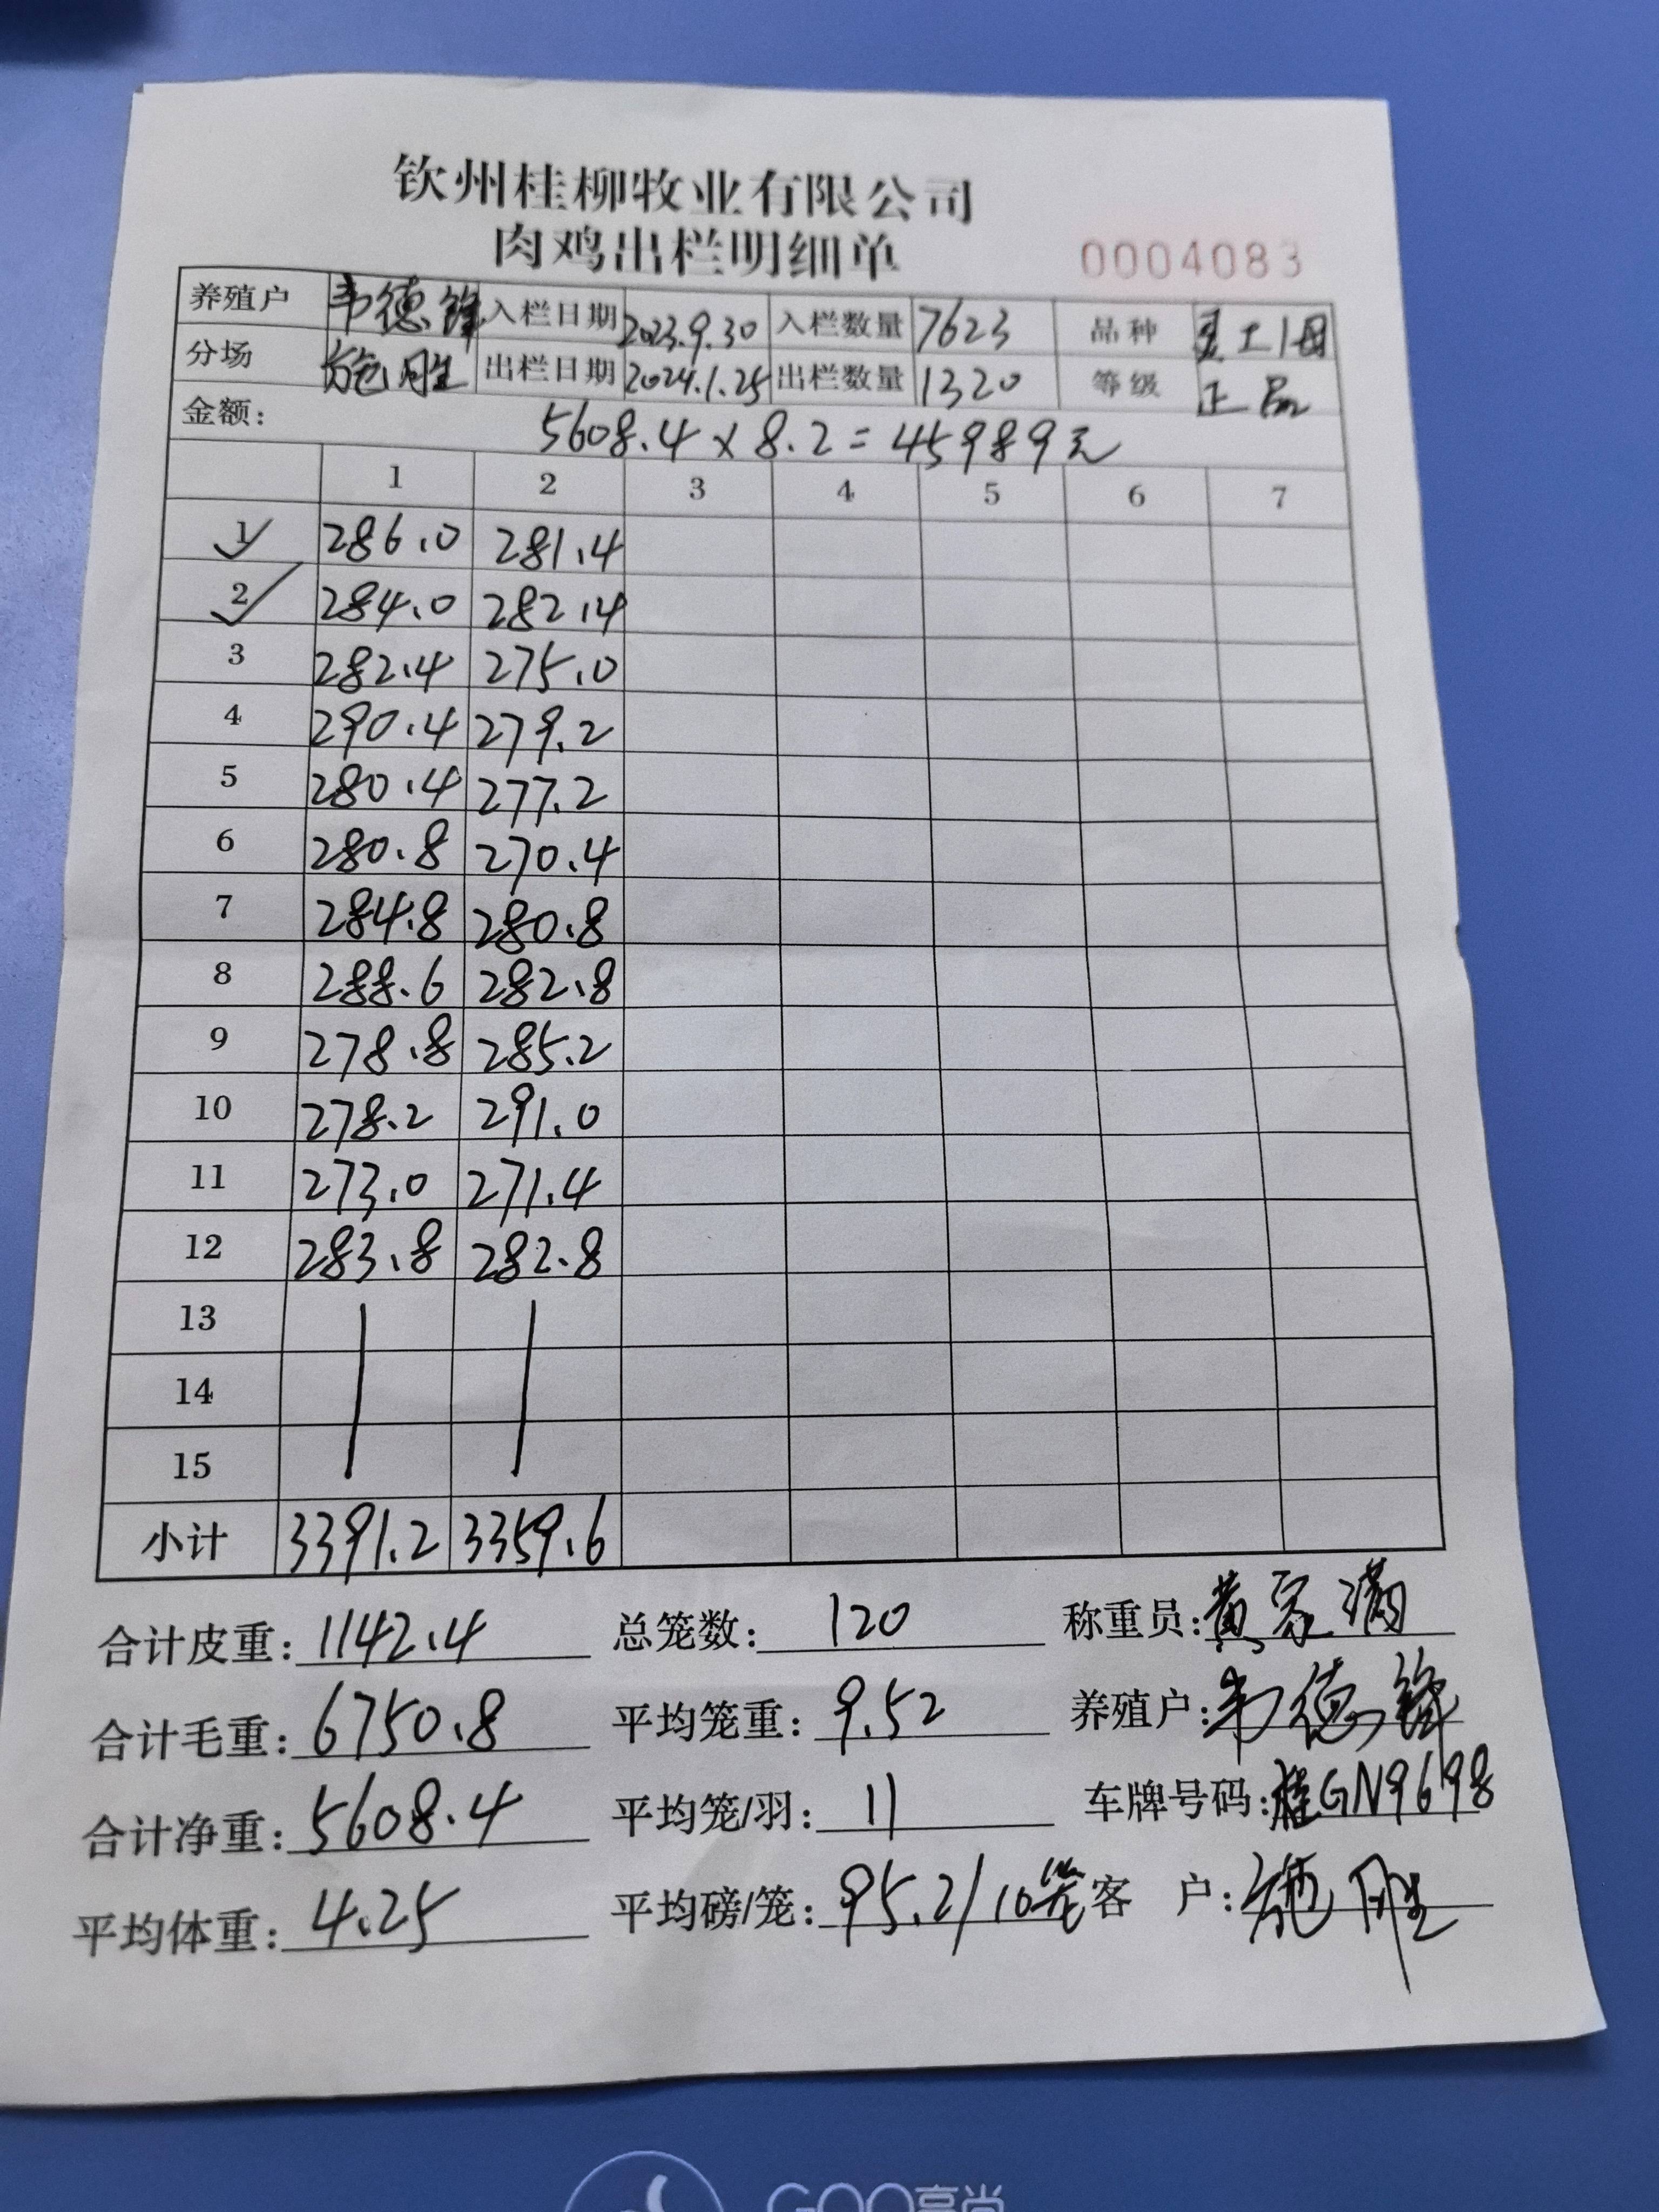 钦州桂柳牧业有限公司
肉鸡出栏明细单
0004083
养殖户 韦德锋 入栏日期 2023.9.30 入栏数量 7623 品种
分场 施胜 出栏日期 2024.1.25 出栏数量 1320 等级 正品
金额: 5608.4×8.2=45989元
1 2 3 4 5 6 7
1 286.0 281.4
2 284.0 282.4
3 282.4 275.0
4 290.4 279.2
5 280.4 277.2
6 280.8 270.4
7 284.8 280.8
8 288.6 282.8
9 278.8 285.2
10 278.2 291.0
11 273.0 271.4
12 283.8 282.8
13
14
15
小计 3391.2 3359.6
合计皮重: 1142.4 总笼数: 120 称重员: 黄家满
合计毛重: 6750.8 平均笼重: 9.52 养殖户: 韦德锋
合计净重: 5608.4 平均笼/羽: 11 车牌号码: 桂GN9698
平均体重: 4.25 平均磅/笼: 95.2/10笼 客户: 施胜
GOO高尚